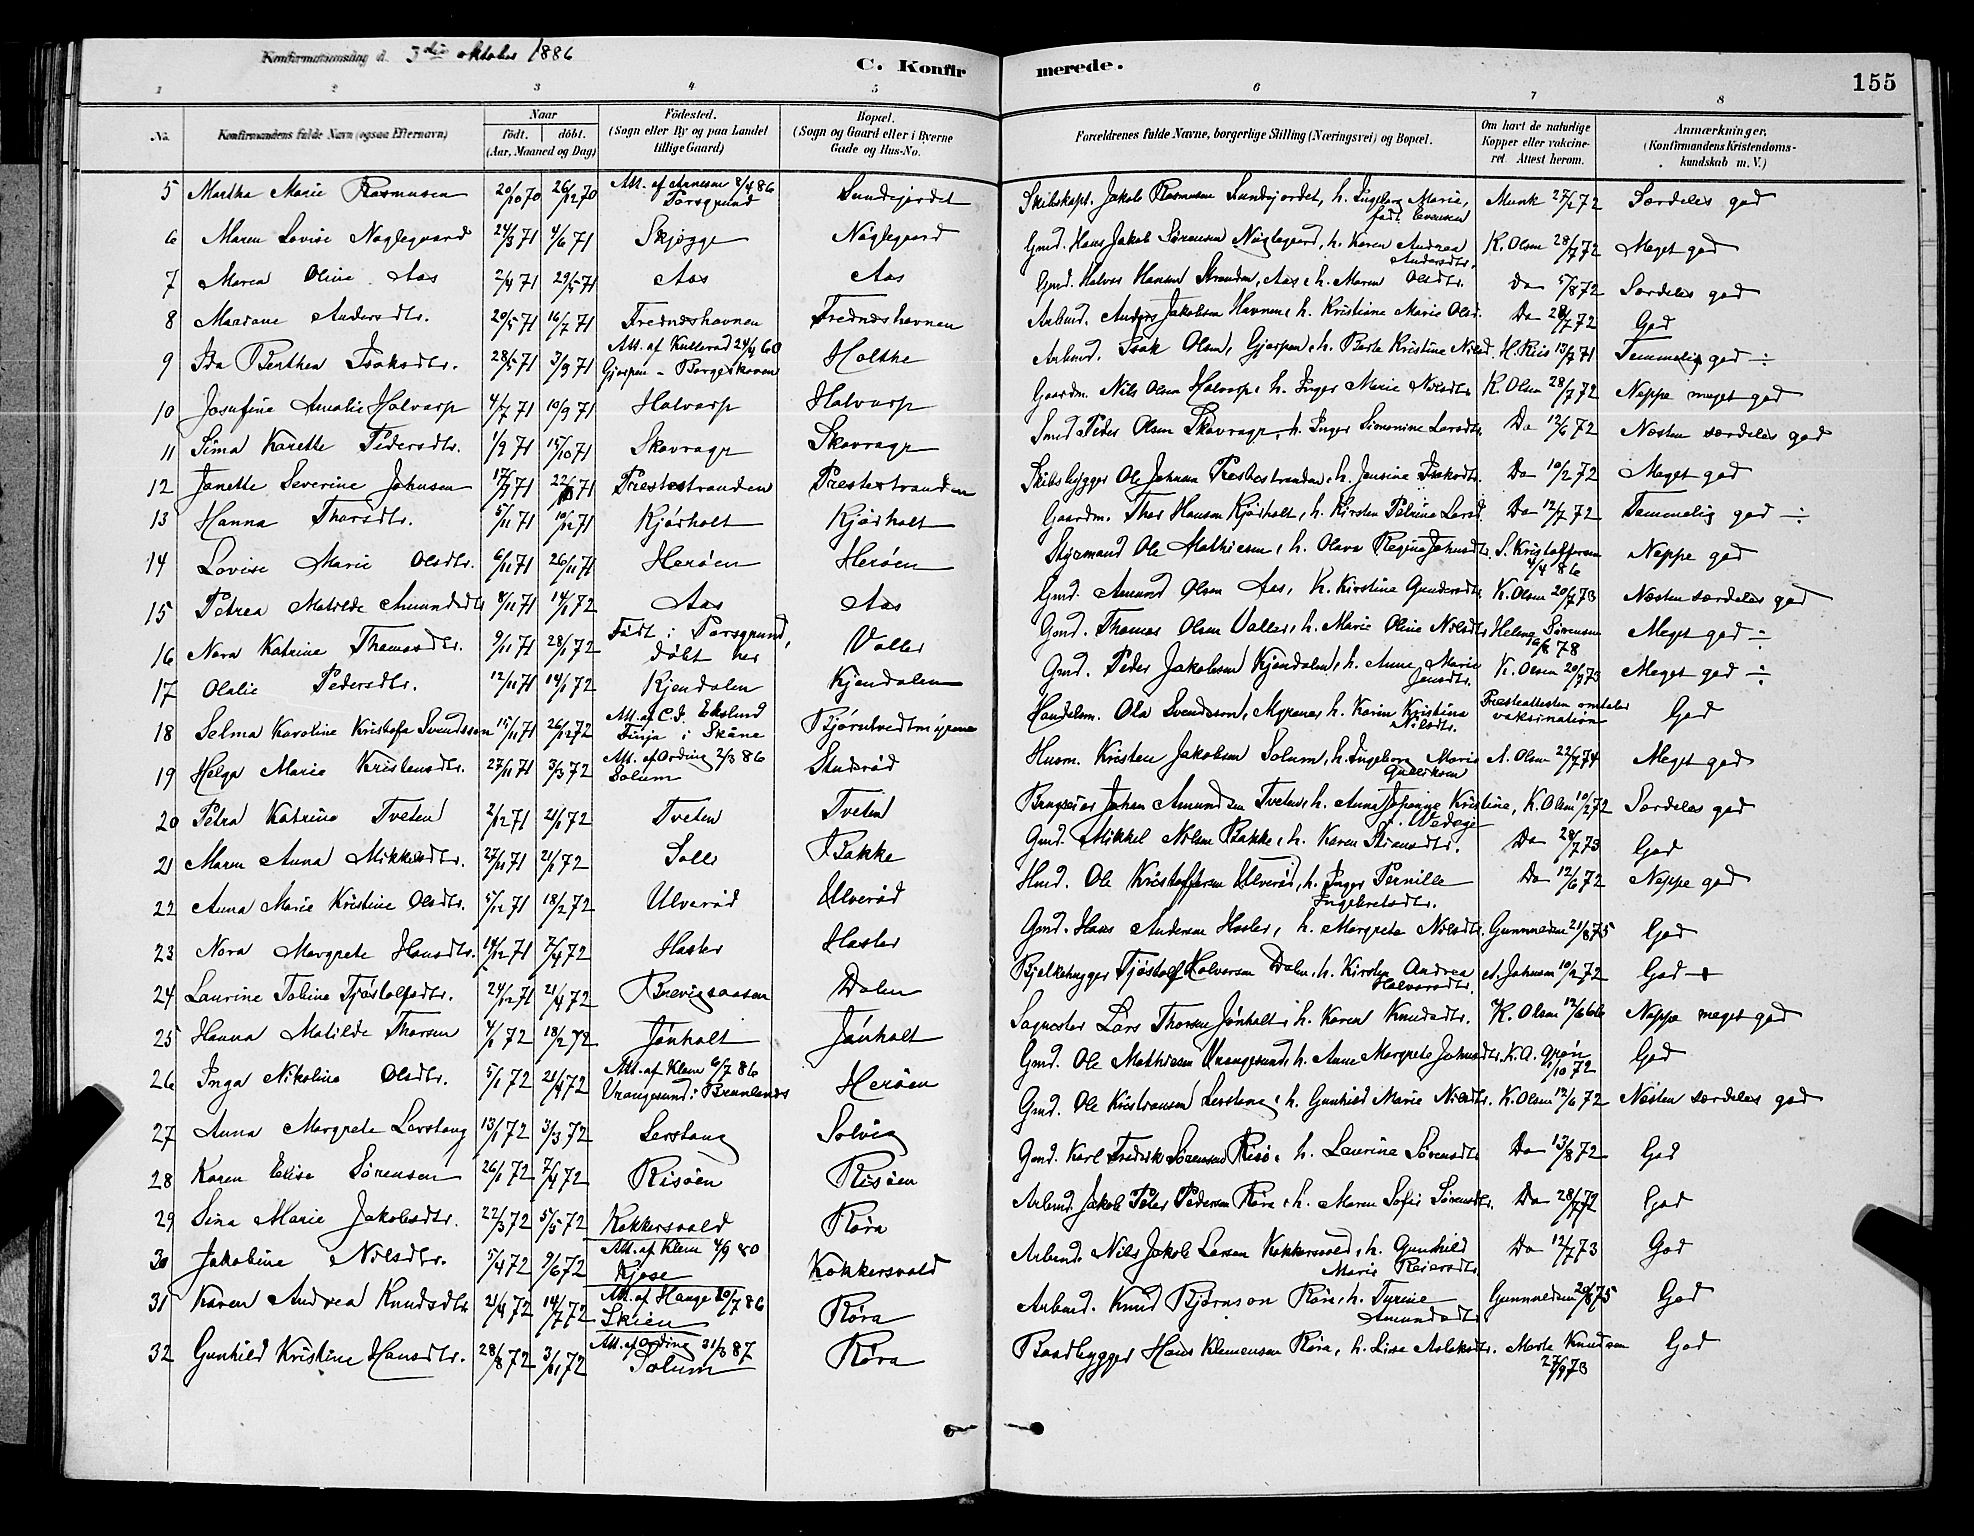 Konfirmationsdag d. 3die oktober 1886
C. Konfirmerede.
155
1 2 3 4 5 6 7 8
No. Konfirmandens fulde Navn (ogsaa Efternavn) Naar født. døbt. (Aar, Maaned og Dag) Fødested. (Sogn eller By og paa Landet tillige Gaard) Bopæl. (Sogn og Gaard eller i Byerne Gade og Hus-No. Forældrenes fulde Navne, borgerlige Stilling (Næringsvei) og Bopæl. Om havt de naturlige Kopper eller vaccineret. Attest herom. Anmærkninger. (Konfirmandens Kristendomskundskab m. V.)
5 Martha Marie Rasmussen 20/10 70 26/12 70 Att. af Arnesen 8/4 86 Porsgrund Sundejordet Skibskapt. Jakob Rasmussen Sundejordet, h. Ingeborg Marie, født Evensen Munk 27/2 72 Særdeles god
6 Maren Lovise Nøglegaard 24/3 71 4/6 71 Skjøgge Nøglegaard Gmd. Hans Jakob Sørensen Nøglegaard, h. Karen Andrea Andersdtr. K. Olsen 28/7 72 Meget god
7 Maren Oline Aas 2/4 71 29/5 71 Aas Aas Gmd. Halvor Hansen Stranden, Aas, h. Maren Olsdtr. Do 5/8 72 Særdeles god
8 Mariane Andersdtr. 20/5 71 16/7 71 Frednæshavnen Frednæshavnen Arbmd. Anders Jakobsen Havnen, h. Kristine Marie Olsd. Do 28/7 72 God
9 Ida Berthea Isaksdtr. 28/5 71 3/9 71 Gjerpen - Borgeskoven Holtke Arbmd. Isak Olsen, Gjerpen, h. Berte Kristine Nilsd. H. Riis 13/7 71 Temmelig god ÷
10 Josefine Amalie Halvarp 4/7 71 10/9 71 Halvarp Halvarp Gaardm. Nils Olsen Halvarp, h. Inger Marie Nilsdtr. K. Olsen 28/7 72 Neppe meget god
11 Sina Karette Pedersdtr. 1/9 71 15/10 71 Skavrager Skavrager Smed Peder Olsen Skavrager, h. Inger Simonine Larsdtr. Do 12/6 72 Næsten særdeles god
12 Janette Severine Johnsen 17/9 71 22/10 71 Prestestranden Prestestranden Skibsbygger Ole Johnsen Prestestranden, h. Jensine Isaksdtr. Do 10/2 72 Meget god
13 Hanna Thorsdtr. 5/11 71 10/12 71 Kjørholt Kjørholt Gaardm. Thor Hansen Kjørholt, h. Kirsten Petrine Larsd. Do 12/7 72 Temmelig god ÷
14 Lovise Marie Olsdtr. 6/11 71 26/11 71 Herøen Herøen Styrmand Ole Mathiesen, h. Olava Regine Johnsdtr. S. Kristoffersen 4/4 86 Neppe god
15 Petrea Matilde Amundsdtr 8/11 71 14/1 72 Aas Aas Gmd. Amund Olsen Aas, h. Kirstine Gundersdtr. K. Olsen 20/7 73 Næsten særdeles god
16 Nora Katrine Thomasdtr. 9/11 71 28/1 72 Født i Porsgrund, døbt her Valler Gmd. Thomas Olsen Valler, h. Marie Oline Nilsdtr. Helene Sørensen 16/8 78 Meget god ÷
17 Olalie Pedersdtr. 12/11 71 14/1 72 Kjendalen Kjendalen Gmd. Peder Jakobsen Kjendalen, h. Anne Marie Jensdtr. K. Olsen 20/7 73 Meget god ÷
18 Selma Karoline Kristofa Svendsson 15/11 71 26/12 72 Att. af C. J. Eklund Finja i Skåne Bjørntvedtmyrene Handelsm. Ola Svendsson, Myrene, h. Karin Kristina Nilsdtr. Presteattesten omtaler vaksination God
19 Helga Marie Kristensdtr. 27/11 71 3/3 72 Att. af Ording 2/3 86 Solum Studsrød Husm. Kristen Jakobsen Solum, h. Ingeborg Marie Gulliksen A. Olsen 22/7 74 Meget god
20 Petra Katrine Tveten 2/12 71 21/1 72 Tveten Tveten Brugseier Johan Amundsen Tveten, h. Anne Johanne Kristine, f. Wedøe K. Olsen 10/2 72 Særdeles god
21 Maren Anna Mikkelsdtr. 27/11 71 21/1 72 Solli Bakke Gmd. Mikkel Nilsen Bakke, h. Karen Stiansdtr. Do 28/7 73 God
22 Anna Marie Kristine Olsdtr. 5/12 71 18/2 72 Ulverød Ulverød Hmd. Ole Kristoffersen Ulverød, h. Inger Pernille Ingebretsdtr. Do 12/6 72 Neppe god
23 Nora Margrete Hansdtr. 14/12 71 7/4 72 Hasler Hasler Gmd. Hans Andersen Hasler, h. Margrete Nilsdtr. Gunnuldsen 21/8 75 God
24 Laurine Tobine Tjøstolfsdtr. 24/12 71 21/4 72 Brevigsaasen Dalen Bjelkehugger Tjøstolf Halvorsen Dalen, h. Kirsten Andrea Halvorsdtr. A. Johnsen 10/2 72 God +
25 Hanna Matilde Thorsen 4/1 72 18/2 72 Jønholt Jønholt Sagmester Lars Thorsen Jønholt, h. Karen Knudsdtr. K. Olsen 12/6 Neppe meget god
26 Inga Nikoline Olsdtr. 5/1 72 21/4 72 Att. af Klem 6/7 86 Vrangesund i Brunlanes Herøen Gmd. Ole Mathiesen Vrangesund, h. Anne Margrete Johnsdtr. K. A. Grøn 1/10 72 God
27 Anna Margrete Lerstang 13/1 72 3/3 72 Lerstang Solvig Gmd. Ole Kristiansen Lerstang, h. Gunhild Marie Nilsdtr. K. Olsen 12/6 72 Næsten særdeles god
28 Karen Elise Sørensen 26/1 72 7/4 72 Risøen Risøen Gmd. Karl Fredrik Sørensen Risø, h. Laurine Sørensdtr. Do 13/8 72 God
29 Sina Marie Jakobsdtr. 22/3 72 5/5 72 Kokkersvold Røra Arbmd. Jakob Peter Pedersen Røra, h. Maren Sofie Sørensdtr. Do 28/7 72 God
30 Jakobine Nilsdtr. 5/4 72 9/6 72 Att. af Klem 4/9 80 Kjose Kokkersvold Arbmd. Nils Jakob Larsen Kokkersvold, h. Gunhild Marie Reiersdtr. Do 12/7 73 God
31 Karen Andrea Knudsdtr 21/4 72 14/7 72 Att. af Hauge 20/7 86 Skien Røra Arbmd. Knud Bjørnson Røra, h. Turine Amundsdtr Gunnuldsen 20/8 75 God
32 Gunhild Kristine Hansdtr. 28/8 72 3/11 72 Att. af Ording 31/3 87 Solum Røra Baadbygger Hans Klemensen Røra, h. Lise Aslaksdtr. Marte Knudsen 27/9 73 God